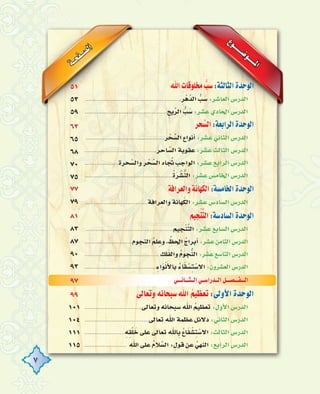 الموضوع
الصفحة
الوحدة الثالثة: سبُّ مخلوقات الله ٥١
الدرس العاشر: سبُّ الدَّهر ٥٣
الدرس الحادي عشر: سبُّ الرِّيح ٥٩
الوحدة الرابعة: السِّحر ٦٣
الدرس الثاني عشر: أنواع السِّحْر ٦٥
الدرس الثالث عشر: عقوبة السَّاحر ٦٨
الدرس الرابع عشر: الواجب تجاه السِّحْر والسَّحرة ٧٠
الدرس الخامس عشر: النُّشْرَةُ ٧٥
الوحدة الخامسة: الكهانَة والعرافَة ٧٧
الدرس السادس عشر: الكهانَة والعرافة ٧٩
الوحدة السادسة: التَّنْجيم ٨١
الدرس السابع عشر: التَّنْجيم ٨٣
الدرس الثامن عشر: أبراجُ الحظ، وعلمُ النجوم ٨٧
الدرس التاسع عشر: النجوم والفلك ٩٠
الدرس العشرون: الاسْتسْقَاءُ بالأنْوَاء ٩٣
الـفـصـل الـدراسـي الـثـانـي ٩٧
الوحدة الأولى: تعظيمُ الله سبحانه وتعالى ٩٩
الدرس الأول: تعظيمُ الله سبحانه وتعالى ١٠١
الدرس الثاني: دلائل عظمة الله تعالى ١٠٤
الدرس الثالث: الاسْتِشْفاعُ بالله تعالى على خلقه ١١١
الدرس الرابع: النهيُ عن قول: السَّلامُ على الله ١١٥
٧